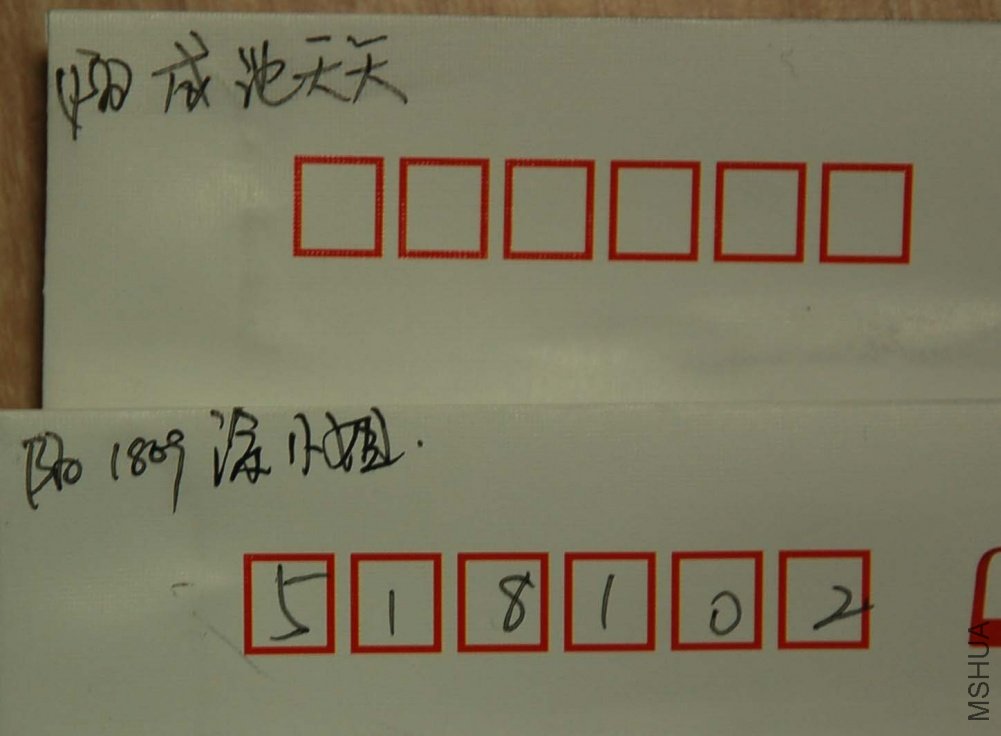 阳 咸池天天
阳 1809 涂小姐.
518102
MSHUA